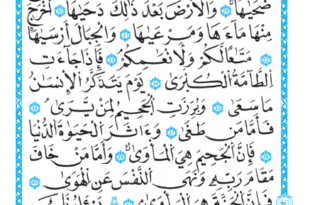 ضُحَىٰهَا ۝ وَالْأَرْضَ بَعْدَ ذَٰلِكَ دَحَىٰهَا ۝ أَخْرَجَ
مِنْهَا مَاءَهَا وَمَرْعَىٰهَا ۝ وَالْجِبَالَ أَرْسَىٰهَا ۝
مَتَاعًا لَّكُمْ وَلِأَنْعَامِكُمْ ۝ فَإِذَا جَاءَتِ
الطَّامَّةُ الْكُبْرَىٰ ۝ يَوْمَ يَتَذَكَّرُ الْإِنسَانُ
مَا سَعَىٰ ۝ وَبُرِّزَتِ الْجَحِيمُ لِمَن يَرَىٰ ۝
فَأَمَّا مَن طَغَىٰ ۝ وَءَاثَرَ الْحَيَوٰةَ الدُّنْيَا
۝ فَإِنَّ الْجَحِيمَ هِيَ الْمَأْوَىٰ ۝ وَأَمَّا مَنْ خَافَ
مَقَامَ رَبِّهِ وَنَهَى النَّفْسَ عَنِ الْهَوَىٰ ۝
فَإِنَّ الْجَنَّةَ هِيَ الْمَأْوَىٰ ۝